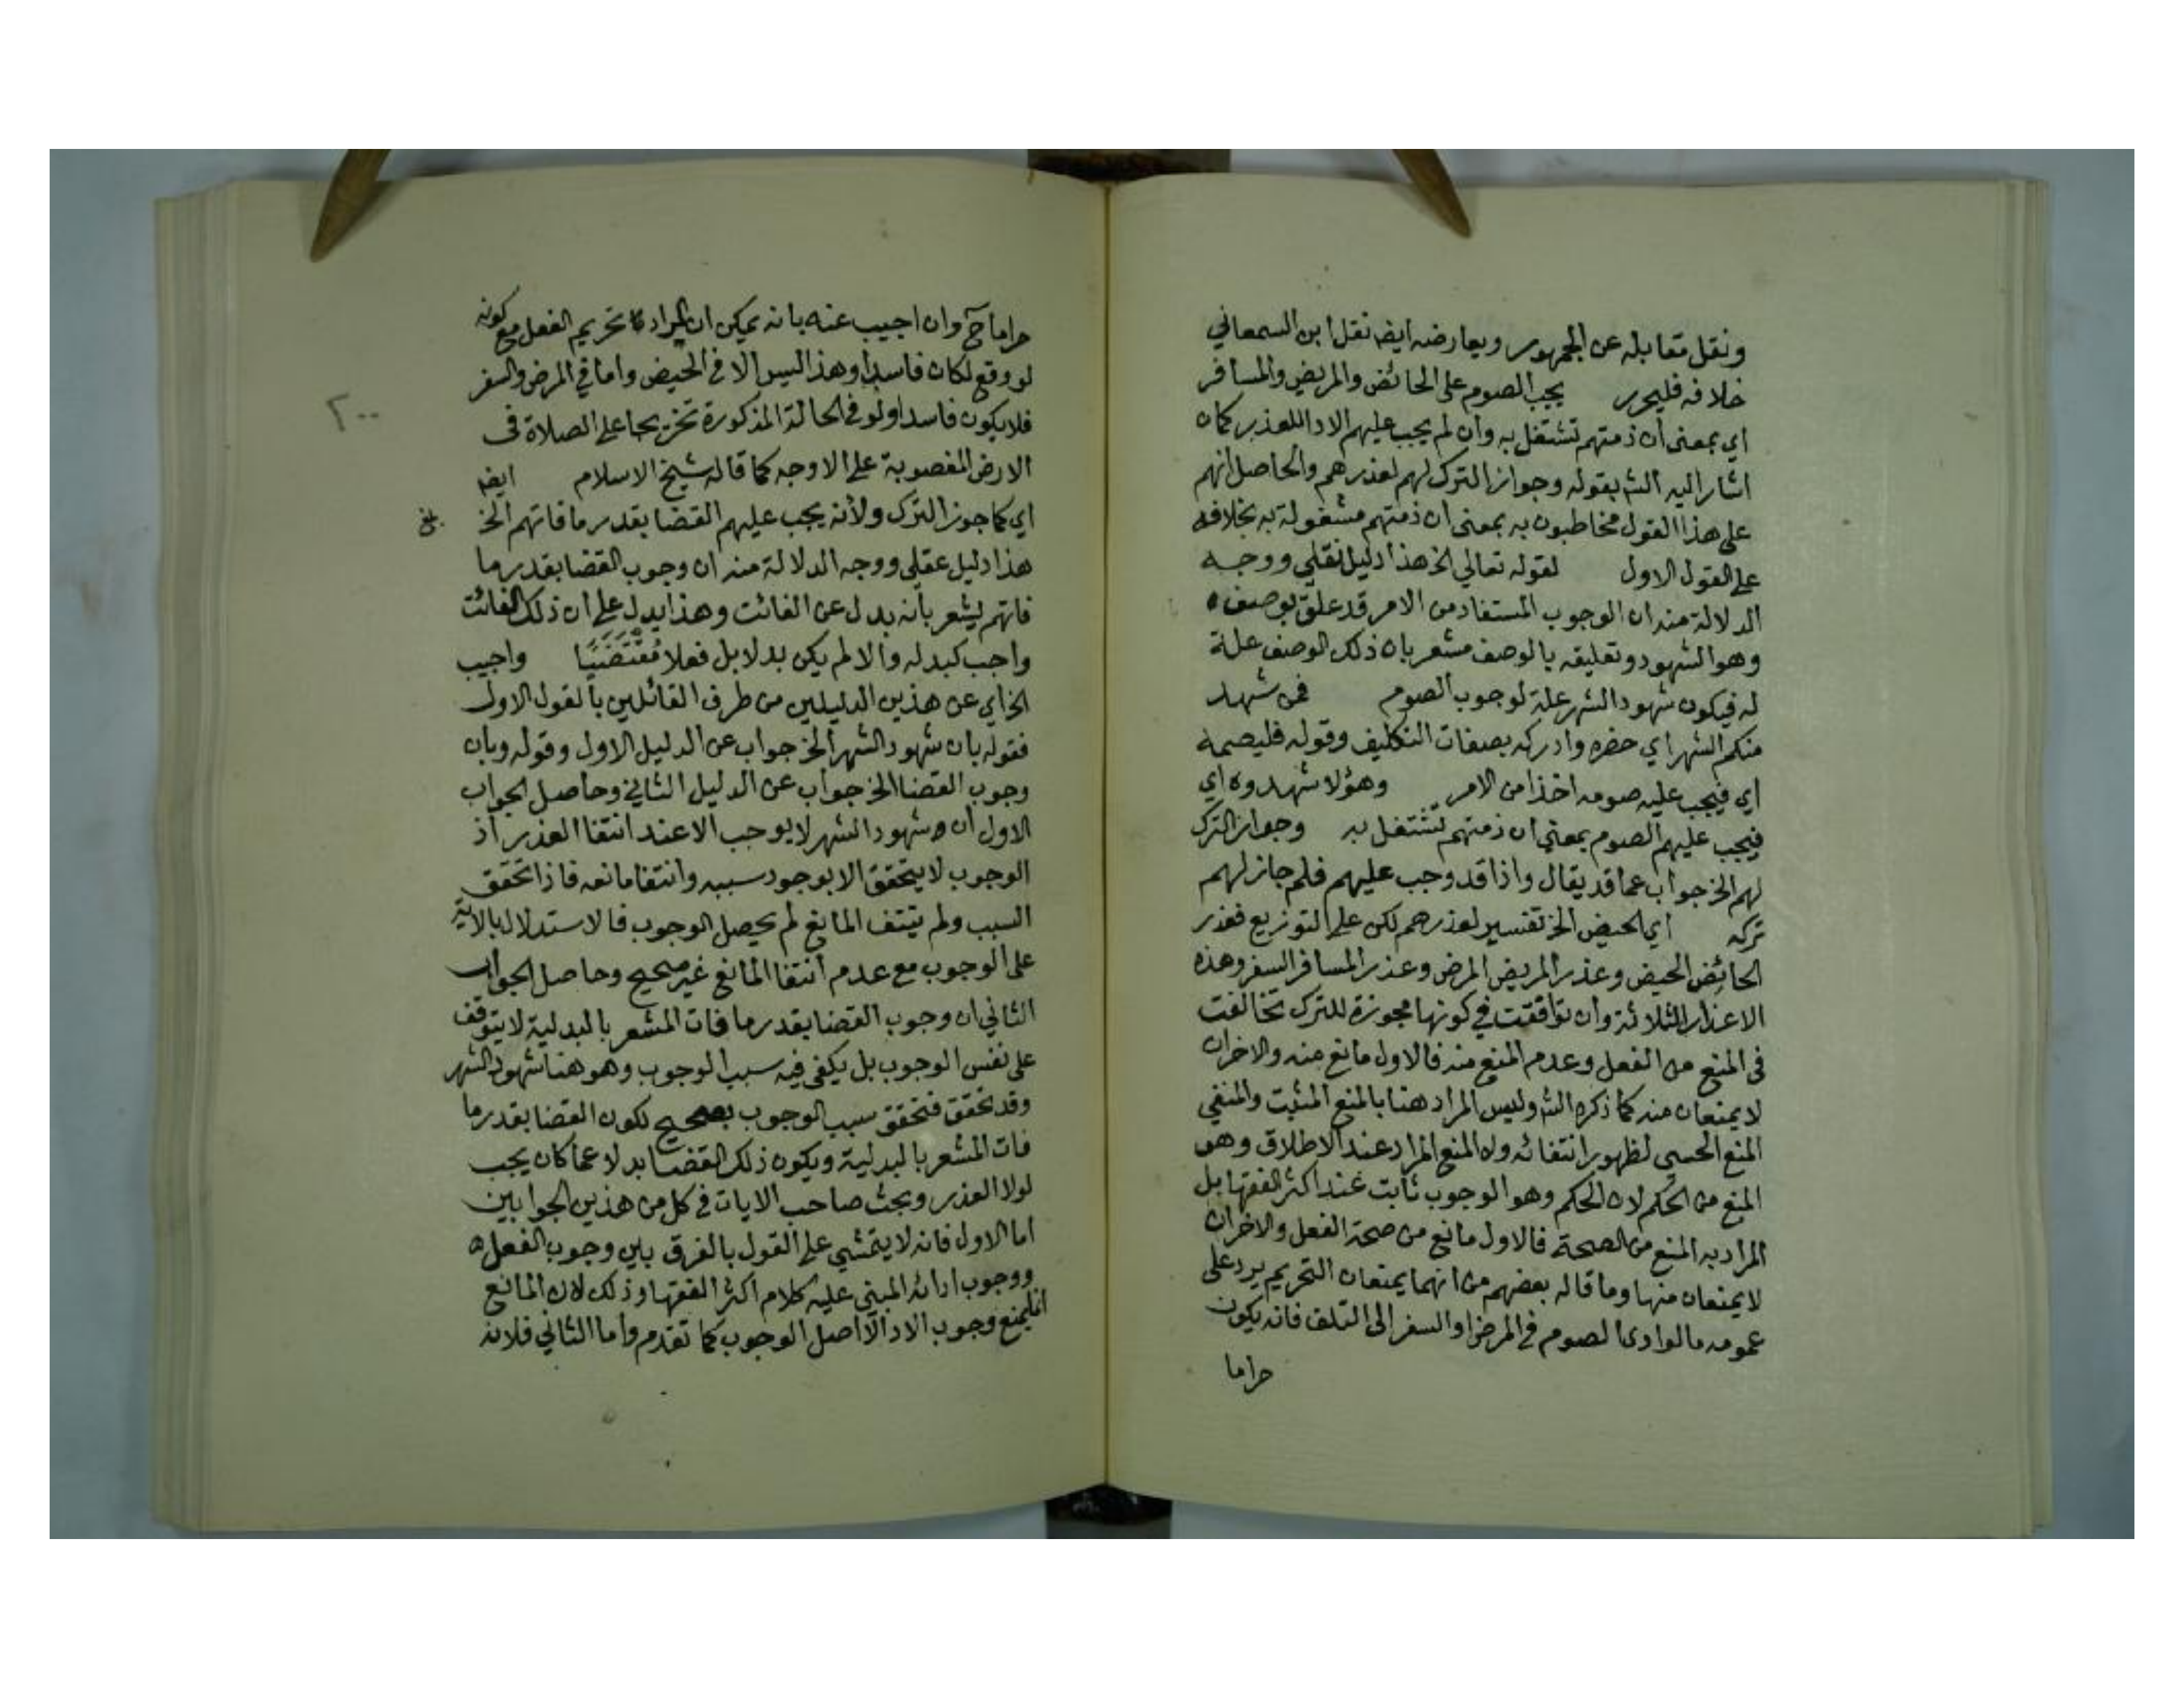 ونقل مقابله عن الجمهور ويعارضه ايضا نقل ابن السمعاني
خلافه فليحرر يجب الصوم على الحائض والمريض والمسافر
اي بمعنى ان ذمتهم تشتغل به وان لم يجب عليهم الادا للعذر كما
اشار اليه الش بقوله وجواز الترك لهم لعذرهم والحاصل انهم
على هذا القول مخاطبون به بمعنى ان ذمتهم مشغولة به بخلافه
على القول الاول لقوله تعالي الخ هذا دليل نقلي ووجه
الدلالة منه ان الوجوب المستفاد من الامر قد علق بوصف
وهو الشهود وتعليقه بالوصف مشعر بان ذلك الوصف علة
له فيكون شهود الشهر علة لوجوب الصوم فمن شهد
منكم الشهر اي حضره وادركه بصفات التكليف وقوله فليصمه
اي فيجب عليه صومه اخذا من الامر وهؤلا شهدوه اي
فيجب عليهم الصوم بمعني ان ذمتهم تشتغل به وجواز الترك
لهم الخ جواب عما قد يقال واذا قد وجب عليهم فلم جاز لهم
تركه اي الحيض الخ تفسير لعذرهم لكن على التوزيع فعذر
الحائض الحيض وعذر المريض المرض وعذر المسافر السفر وهذه
الاعذار الثلاثة وان توافقت في كونها مجوزة للترك تخالفت
في المنع من الفعل وعدم المنع منه فالاول مانع منه والاخران
لا يمنعان منه كما ذكره الش وليس المراد هنا بالمنع المثبت والمنفي
المنع الحسي لظهور انتفائه ولا المنع المراد عند الاطلاق وهو
المنع من الحكم لان الحكم وهو الوجوب ثابت عند اكثر الفقها بل
المراد به المنع من الصحة فالاول مانع من صحة الفعل والاخران
لا يمنعان منها وما قاله بعضهم من انهما يمنعان التحريم يرد على
عمومه ما لو ادى الصوم في المرض او السفر الى التلف فانه يكون
حراما
حراما ح وان اجيب عنه بانه يمكن ان المراد تحريم الفعل مع كونه
لو وقع لكان فاسدا وهذا ليس الا في الحيض واما في المرض والسفر
فلا يكون فاسدا ولو في الحالة المذكورة تخريجا على الصلاة في
٢٠٠
الارض المغصوبة على الاوجه كما قاله شيخ الاسلام ايضا
اي كما جوز الترك ولأنه يجب عليهم القضا بقدر ما فاتهم الخ
بلغ
هذا دليل عقلي ووجه الدلالة منه ان وجوب القضا بقدر ما
فاتهم يشعر بأنه بدل عن الفائت وهذا يدل على ان ذلك الفائت
واجب كبدله والا لم يكن بدلا بل فعلا مُقْتَضَيًا واجيب
الخ اي عن هذين الدليلين من طرف القائلين بالقول الاول
فقوله بان شهود الشهر الخ جواب عن الدليل الاول وقوله وبان
وجوب القضا الخ جواب عن الدليل الثاني وحاصل الجواب
الاول ان شهود الشهر لا يوجب الا عند انتفا العذر اذ
الوجوب لا يتحقق الا بوجود سببه وانتفا مانعه فاذا تحقق
السبب ولم ينتف المانع لم يحصل الوجوب فالاستدلال بالاية
على الوجوب مع عدم انتفا المانع غير صحيح وحاصل الجواب
الثاني ان وجوب القضا بقدر ما فات المشعر بالبدلية لا يتوقف
على نفس الوجوب بل يكفي فيه سبب الوجوب وهو هنا شهود الشهر
وقد تحقق فتحقق سبب الوجوب مصحح لكون القضا بقدر ما
فات المشعر بالبدلية ويكون ذلك القضا بدلا عما كان يجب
لولا العذر وبحث صاحب الايات في كل من هذين الجوابين
اما الاول فانه لا يتمشي على القول بالفرق بين وجوب الفعل
ووجوب ادائه المبني عليه كلام اكثر الفقها وذلك لان المانع
انما يمنع وجوب الادا لا اصل الوجوب كما تقدم واما الثاني فلانه